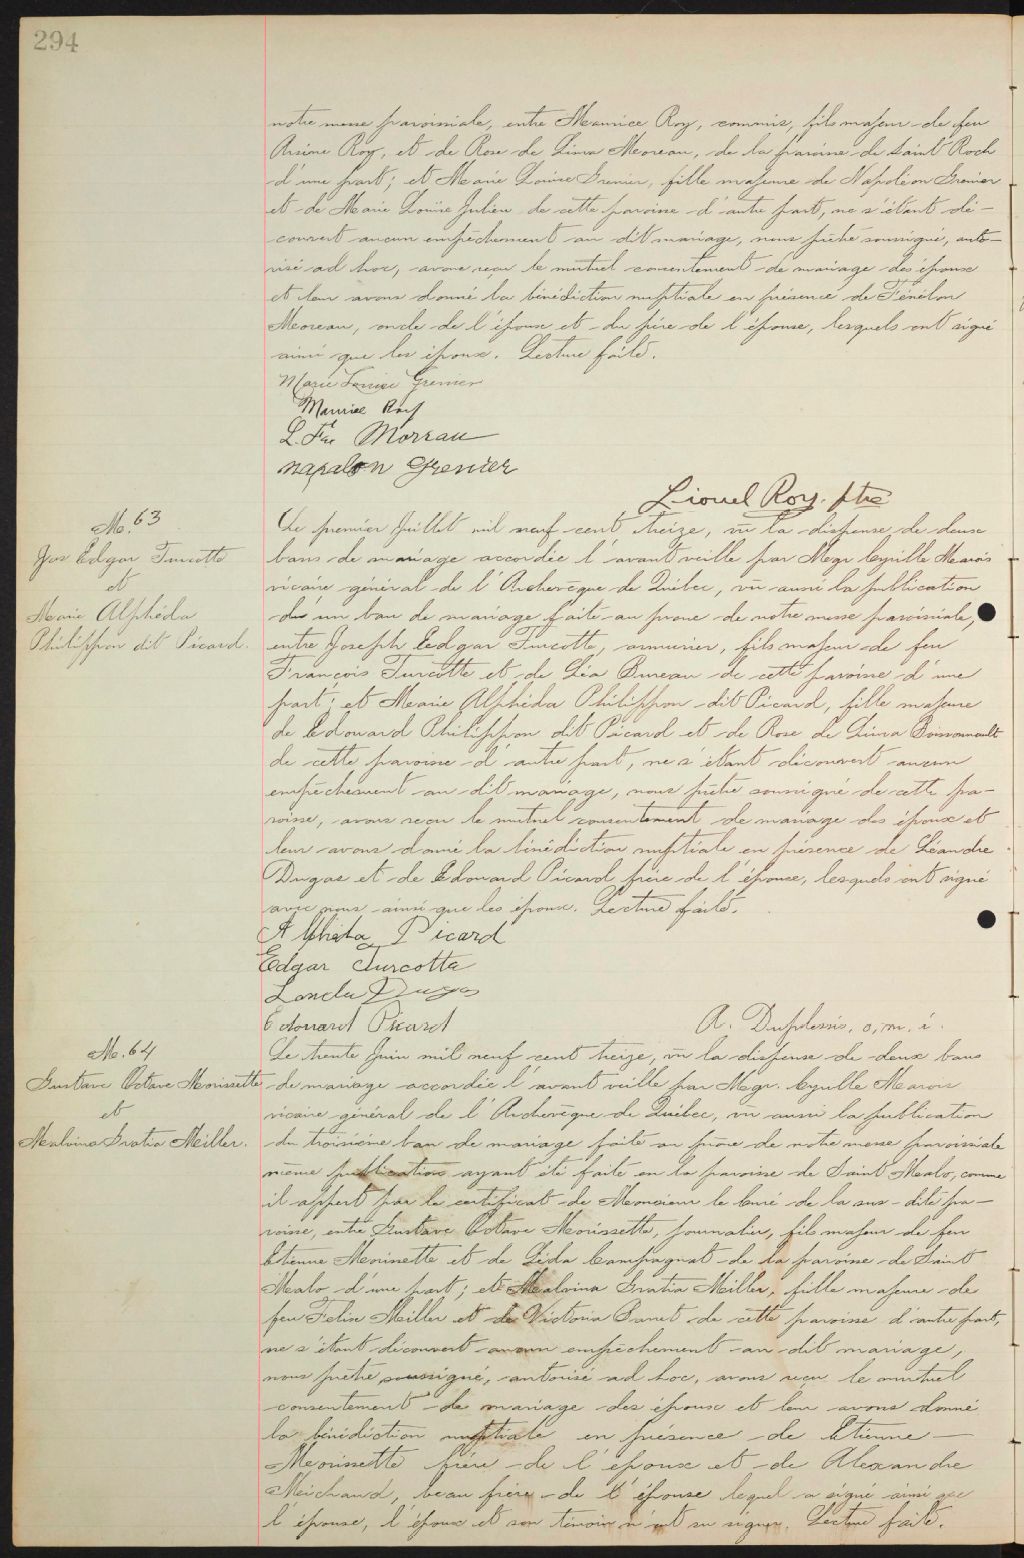 294
notre messe paroissiale, entre Maurice Roy, commis, fils majeur de feu
Arsène Roy, et de Rose de Lima Moreau, de la paroisse de Saint Roch
d'une part; et Marie Louise Grenier, fille majeure de Napoléon Grenier
et de Marie Louise Julien de cette paroisse d'autre part, ne s'étant dé-
couvert aucun empêchement au dit mariage, nous prêtre soussigné, auto-
risé ad hoc, avons reçu le mutuel consentement de mariage des époux
et leur avons donné la bénédiction nuptiale en présence de Fénélon
Moreau, oncle de l'époux et du père de l'épouse, lesquels ont signé
ainsi que les époux. Lecture faite.
Marie Louise Grenier
Maurice Roy
L. Fén Moreau
Napaleon Grenier
Lionel Roy. ptre
M. 63
Jos Edgar Turcotte
et
Marie Alphéda
Philippon dit Picard.
Le premier Juillet mil neuf cent treize, vu la dispense de deux
bans de mariage accordée l'avant veille par Mgr Cyrille Marois
vicaire général de l'Archevêque de Québec, vu aussi la publication
d'un ban de mariage faite au prone de notre messe paroissiale,
entre Joseph Edgar Turcotte, armurier, fils majeur de feu
François Turcotte et de Léa Bureau de cette paroisse d'une
part; et Marie Alphéda Philippon dit Picard, fille majeure
de Edouard Philippon dit Picard et de Rose de Lima Boissonnault
de cette paroisse d'autre part, ne s'étant découvert aucun
empêchement au dit mariage, nous prêtre soussigné de cette pa-
roisse, avons reçu le mutuel consentement de mariage des époux et
leur avons donné la bénédiction nuptiale en présence de Léandre
Dugas et de Edouard Picard frère de l'épouse, lesquels ont signé
avec nous ainsi que les époux. Lecture faite.
Alphéda Picard
Edgar Turcotte
Dugas
Edouard Picard
A. Duplessis, o, m, i.
M. 64
Gustave Octave Morissette
et
Malvina Gratia Meiller.
Le trente Juin mil neuf cent treize, vu la dispense de deux bans
de mariage accordée l'avant veille par Mgr. Cyrille Marois
vicaire général de l'Archevêque de Québec, vu aussi la publication
du troisième ban de mariage faite au prône de notre messe paroissiale
même publication ayant été faite en la paroisse de Saint Malo, comme
il appert par le certificat de Monsieur le Curé de la sus-dite pa-
roisse, entre Gustave Octave Morissette, journalier, fils majeur de feu
Etienne Morissette et de Léda Campagnat de la paroisse de Saint
Malo d'une part; et Malvina Gratia Meiller, fille majeure de
feu Felix Meiller et de Victoria Paret de cette paroisse d'autre part,
ne s'étant découvert aucun empêchement au dit mariage,
nous prêtre soussigné, autorisé ad hoc, avons reçu le mutuel
consentement de mariage des époux et leur avons donné
la bénédiction nuptiale en présence de Etienne
Morissette frère de l'époux et de Alexandre
Meichand, beau frère de l'épouse lequel a signé ainsi que
l'épouse, l'époux et son témoin n'ont su signer. Lecture faite.